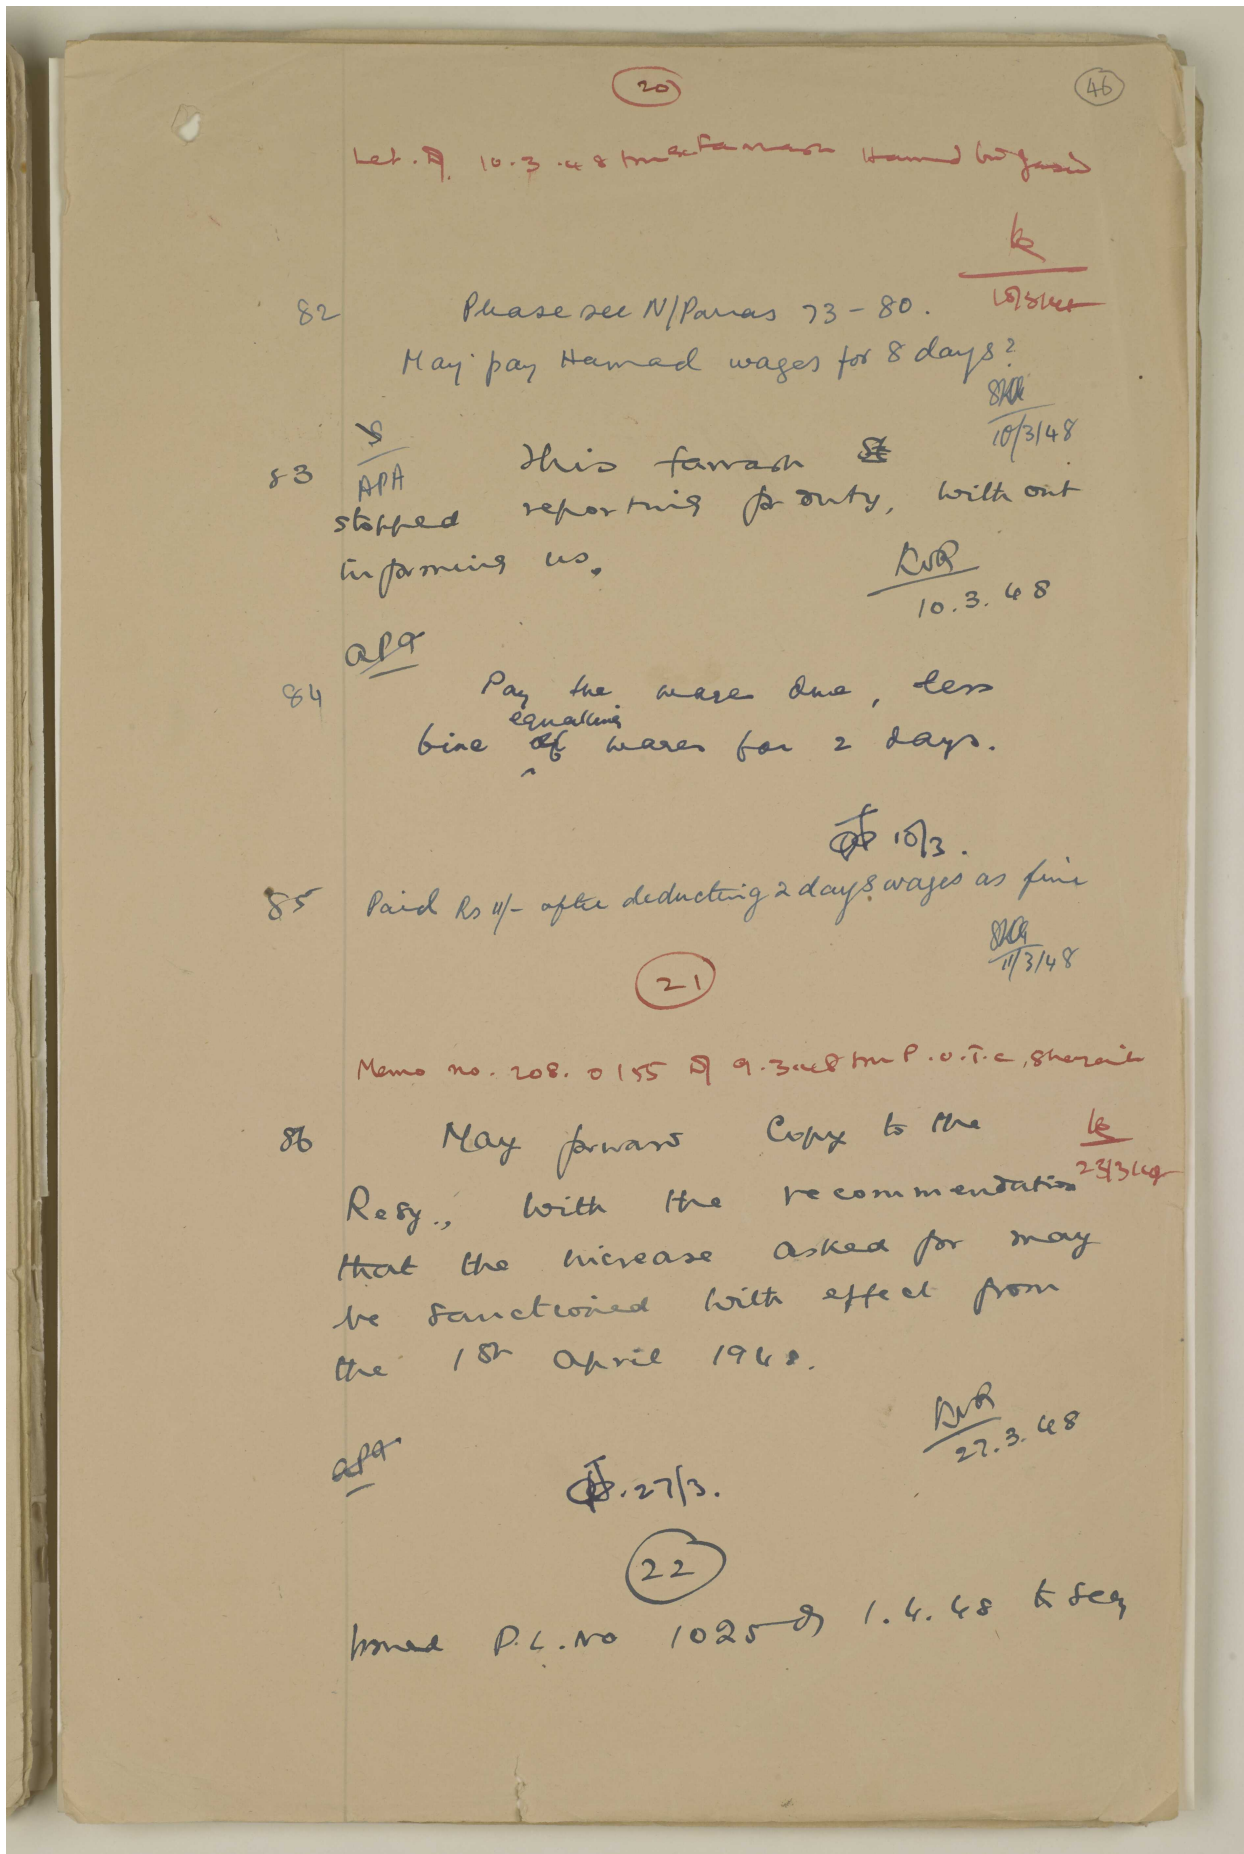 20
46
Let. D. 10.3.48 from ex Farrash Hamad bin Jasim
10/3/48
82 Please see N/Paras 73-80.
May pay Hamad wages for 8 days?
10/3/48
APA
83 This farrash
stopped reporting for duty, without
informing us.
KVR
10.3.48
APA
84 Pay the wages due, less
equalling
fine of wages for 2 days.
10/3.
85 Paid Rs 11/- after deducting 2 days wages as fine
11/3/48
21
Memo no. 208.0155 D/ 9.3.48 from P.O.T.C, Sharjah
23/3/48
86 May forward copy to the
Resy., with the recommendation
that the increase asked for may
be sanctioned with effect from
the 1st April 1948.
KVR
27.3.48
APA
27/3.
22
Issued P.L. No 1025 D/ 1.4.48 to Resy